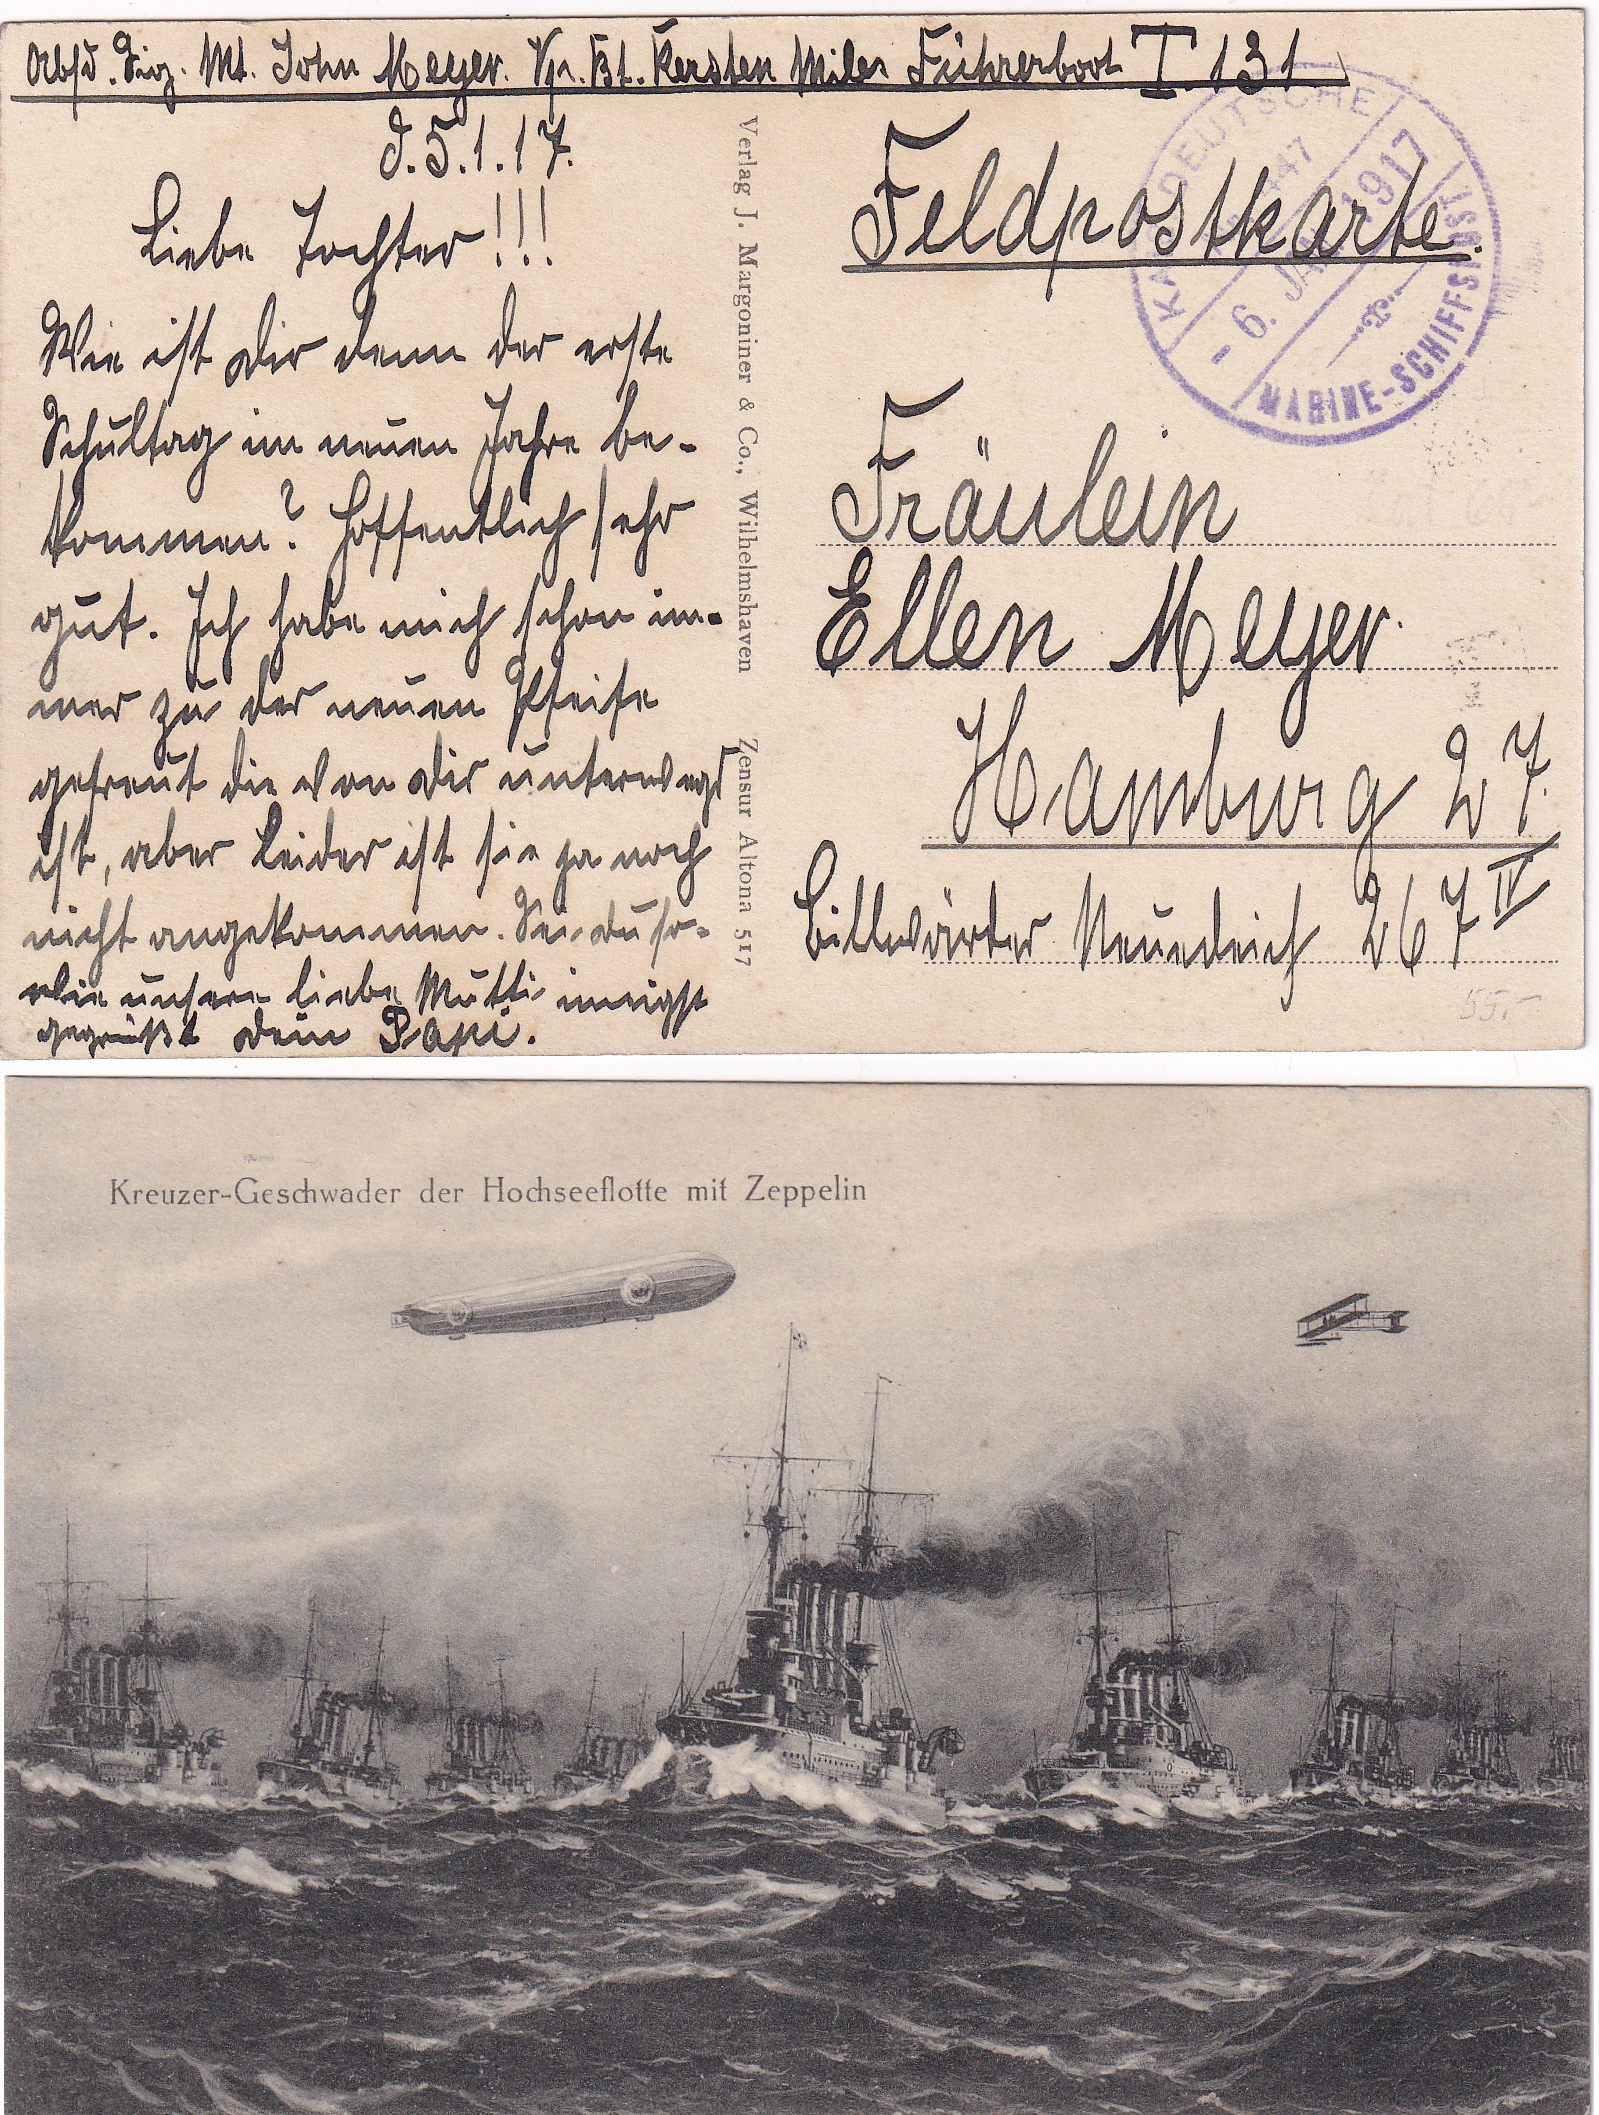 Abs. Sig. Mt. John Meyer. Vp. Bt. Kersten Miles Führerboot T. 131
d. 5.1.17.
Liebe Tochter!!!
Wie ist dir denn der erste
Schultag im neuen Jahre be-
kommen? Hoffentlich sehr
gut. Ich habe mich schon im-
mer zu der neuen Pfeife
gefreut die von dir unterwegs
ist, aber leider ist sie ja noch
nicht angekommen. Sei du so-
wie unsere liebe Mutti innigst
gegrüßt dein Papi.
Verlag J. Margoniner & Co., Wilhelmshaven Zensur Altona 517
Feldpostkarte.
KAIS. DEUTSCHE
- 6. JAN. 1917
MARINE-SCHIFFSPOST
Fräulein
Ellen Meyer.
Hamburg 27.
Billwärder Neuedeich 267 IV
55.-
Kreuzer-Geschwader der Hochseeflotte mit Zeppelin